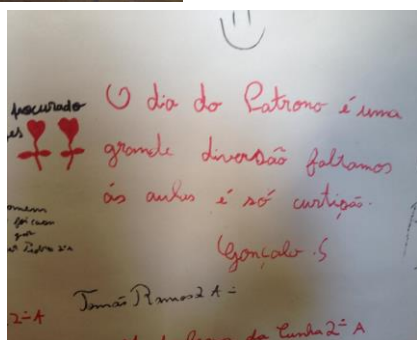 procurado
O dia do Patrono é uma
grande diversão faltamos
ás aulas é só curtição.
Gonçalo .S
Tomás Ramos 2 A
2º A
da Cunha 2º A